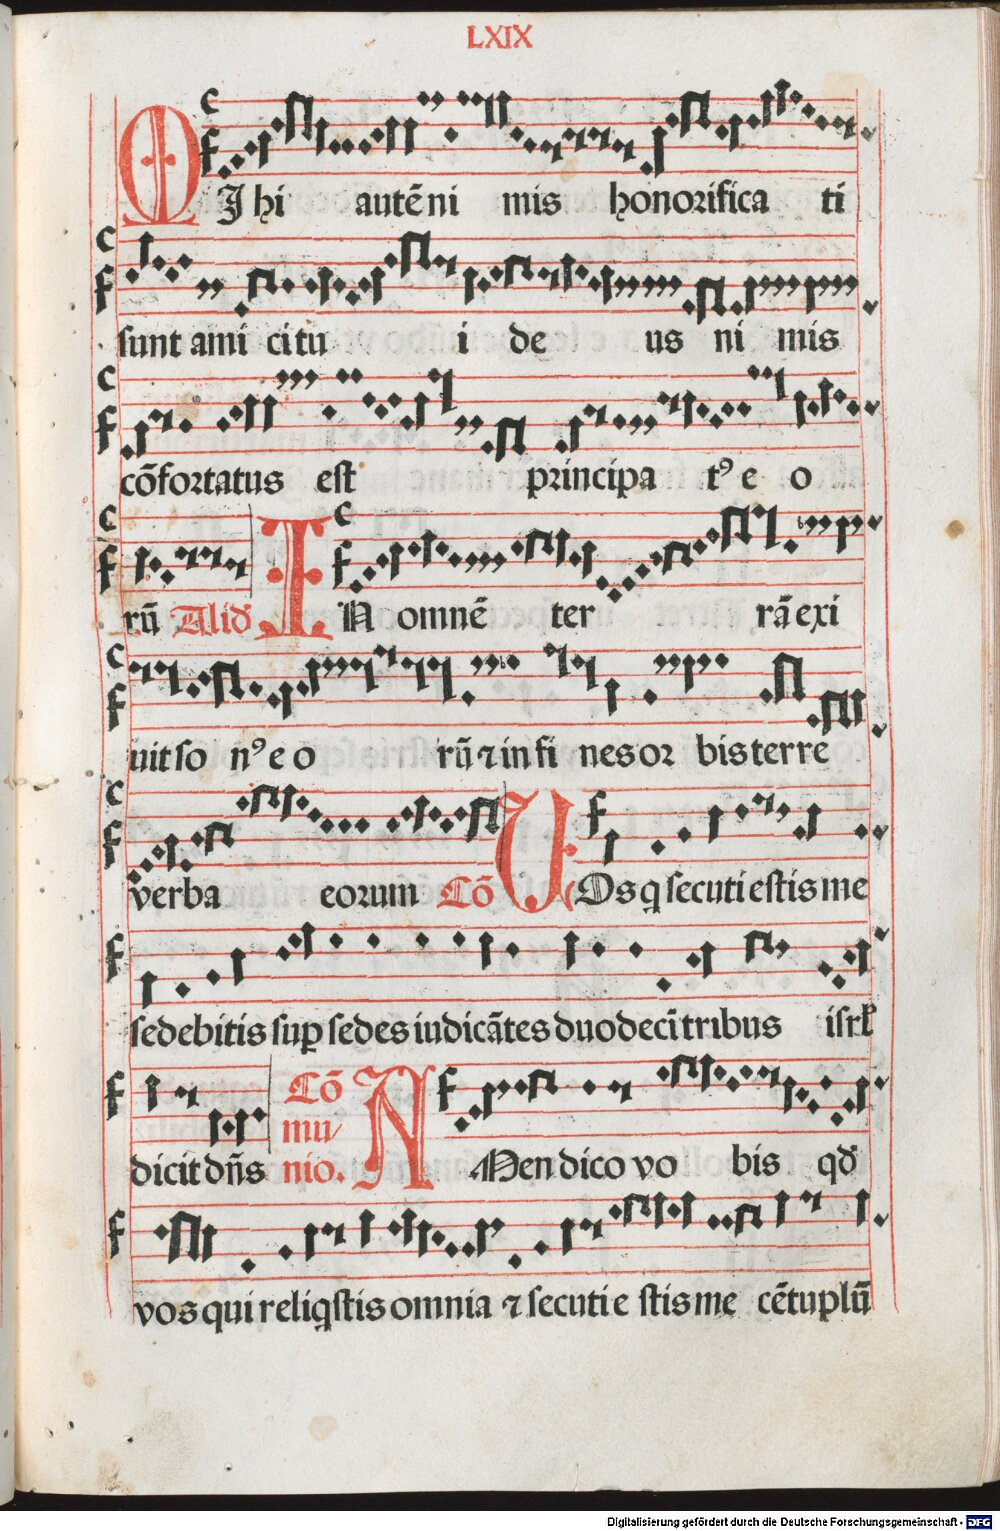 LXIX
MIhi autē ni mis honorifica ti
sunt ami ci tu i de us ni mis
cōfortatus est principa tꝰ e o
rū Aliđ IN omnē ter rā exi
uit so nꝰ e o rū ⁊ in fi nes or bis terre
verba eorum Cō UOs q secuti estis me
sedebitis sup sedes iudicātes duodeci tribus isrl
dicit dn̄s Cōmunio. AMen dico vo bis qđ
vos qui reliqstis omnia ⁊ secuti e stis me cētuplū
Digitalisierung gefördert durch die Deutsche Forschungsgemeinschaft - DFG